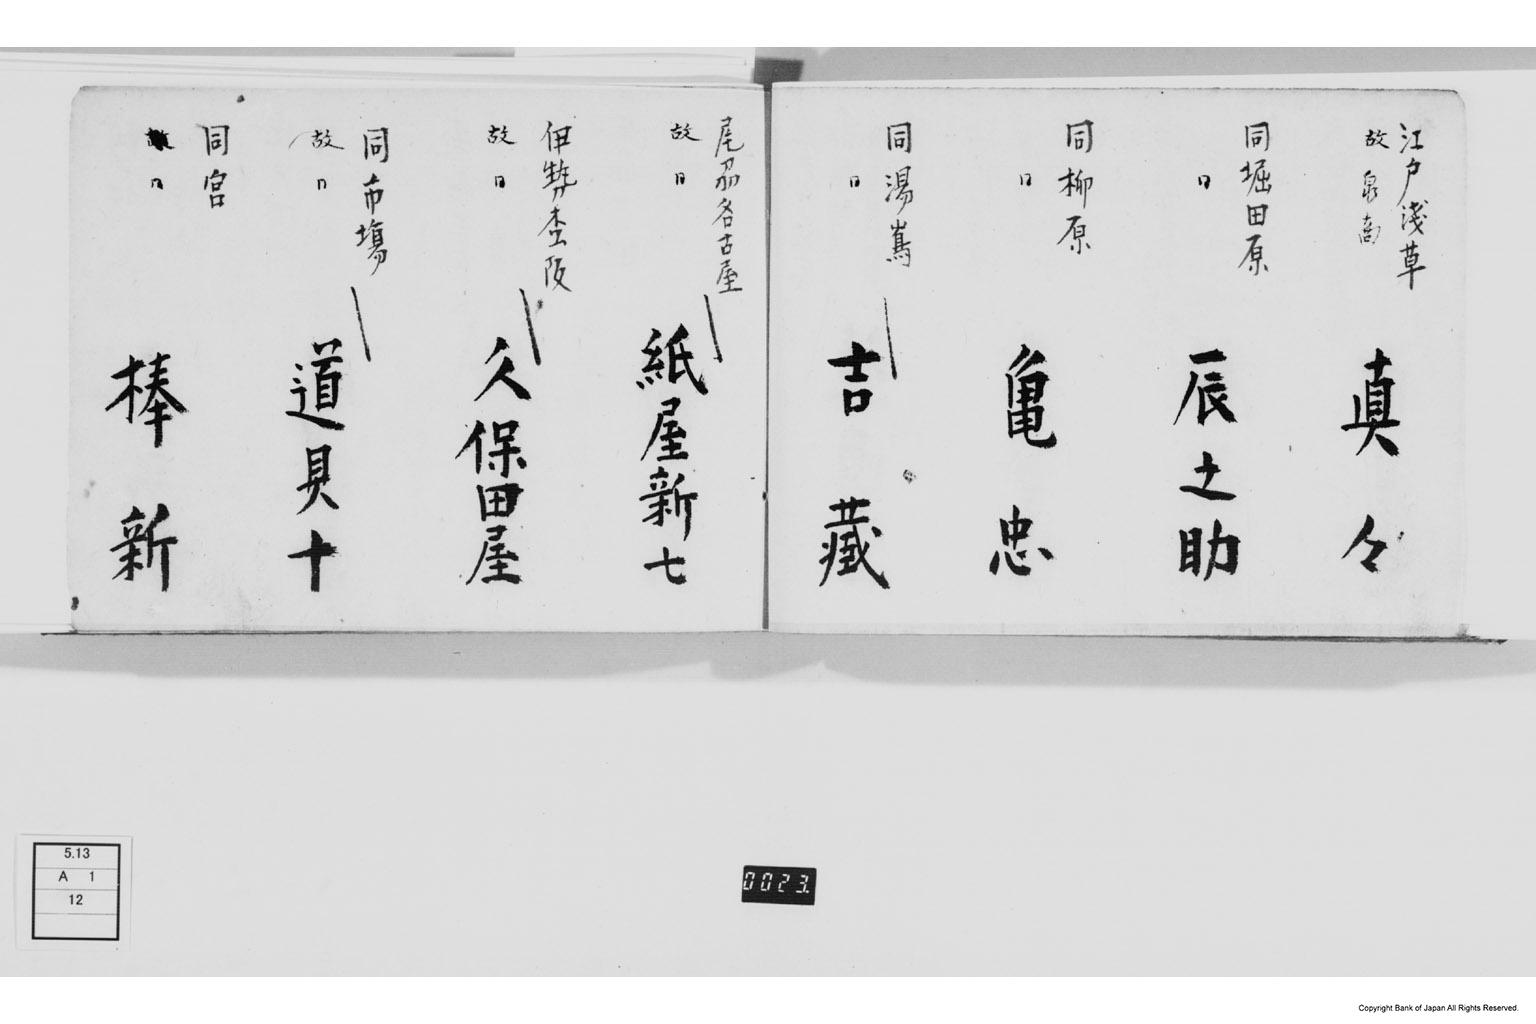 江戸浅草
故 泉商
真々
同堀田原
〃
辰之助
同柳原
〃
亀忠
同湯嶌
〃
吉藏
尾刕名古屋
故 〃
紙屋新七
伊勢枩阪
故 〃
久保田屋
同市場
故 〃
道具十
同宮
〃
棒新
5.13
A 1
12
0023.
Copyright Bank of Japan All Rights Reserved.